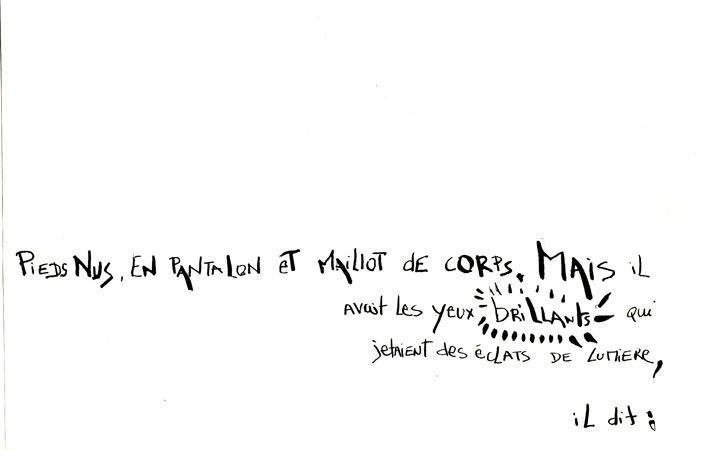 PIEDS NUS, EN PANTALON ET MAILLOT DE CORPS. MAIS iL
avait Les yeux bRiLLANts qui
jetaiENT des éCLATS DE LUMIERE,
iL dit :